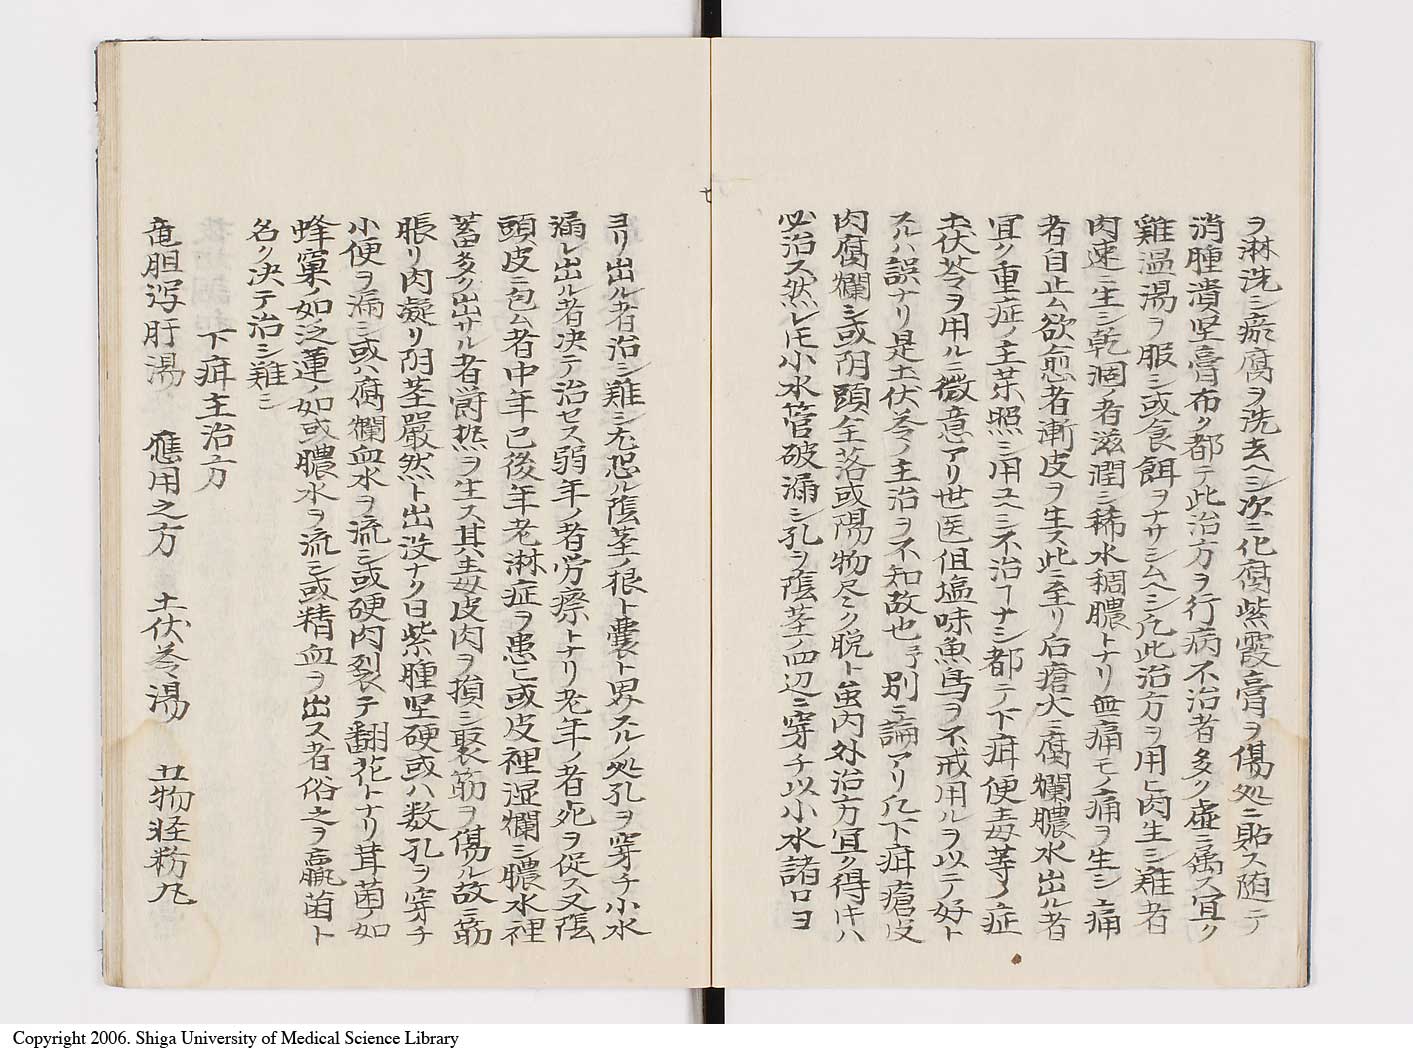 ヲ淋洗シ瘀腐ヲ洗去ヘシ次ニ化腐紫霞膏ヲ傷処ニ貼ス随テ
消腫潰堅膏布ク都テ此治方ヲ行病不治者多ク虚ニ属ス宜ク
雞温湯ヲ服シ或食餌ヲナサシムヘシ凡此治方ヲ用ヒ肉生シ難者
肉速ニ生シ乾涸ノ者滋潤シ稀水稠膿トナリ無痛モノ痛ヲ生シ痛
者自止ム欲愈者漸皮ヲ生ス此ニ至リ后瘡大ニ腐爛膿水出ル者
宜ク重症ノ主薬照シ用ユヘシ不治ヿナシ都テ下疳便毒等ノ症
土伏苓ヲ用ルニ微意アリ世医但塩味魚鳥ヲ不戒用ルヲ以テ好ト
スルハ誤ナリ是土伏苓ノ主治ヲ不知故也予別ニ論アリ凡下疳瘡皮
肉腐爛シ或阴頭全落或陽物尽ク脱ト虽内外治方宜ク得キハ
必治ス然レ𪜈小水管破漏シ孔ヲ陰茎ノ四辺ニ穿チ以小水諸口ヨ
ヨリ出ル者治シ難シ尤恐ル陰茎ノ根ト囊ト界スルノ処孔ヲ穿チ小水
漏レ出ル者決テ治セス弱年ノ者労瘵トナリ老年ノ者死ヲ促ス又陰
頭皮ニ包ム者中年已後年老淋症ヲ患ヒ或皮裡湿爛シ膿水裡
蓄多ク出サル者欝熱ヲ生ス其毒皮肉ヲ損シ聚筋ヲ傷ル故ニ筋
脹リ肉凝リ阴茎嚴然ト出没ナク曰紫腫堅硬或ハ数孔ヲ穿チ
小便ヲ漏シ或ハ腐爛血水ヲ流シ或硬肉裂テ翻花トナリ茸菌ノ如
蜂窠ノ如泛蓮ノ如或膿水ヲ流シ或精血ヲ出ス者俗之ヲ蠃菌ト
名ク決テ治シ難シ
下疳主治方
竜胆泻肝湯　應用之方　土伏苓湯　五物粧粉丸
七
Copyright 2006. Shiga University of Medical Science Library